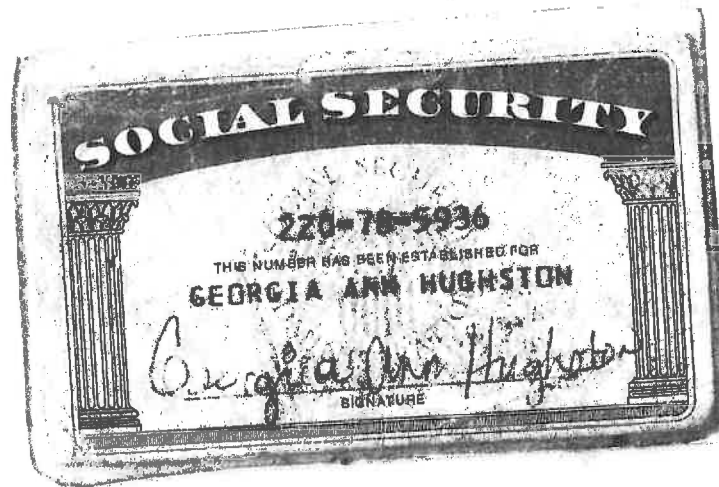 SOCIAL SECURITY
220-78-5936
THIS NUMBER HAS BEEN ESTABLISHED FOR
GEORGIA ANN HUGHSTON
Georgia Ann Hughston
SIGNATURE